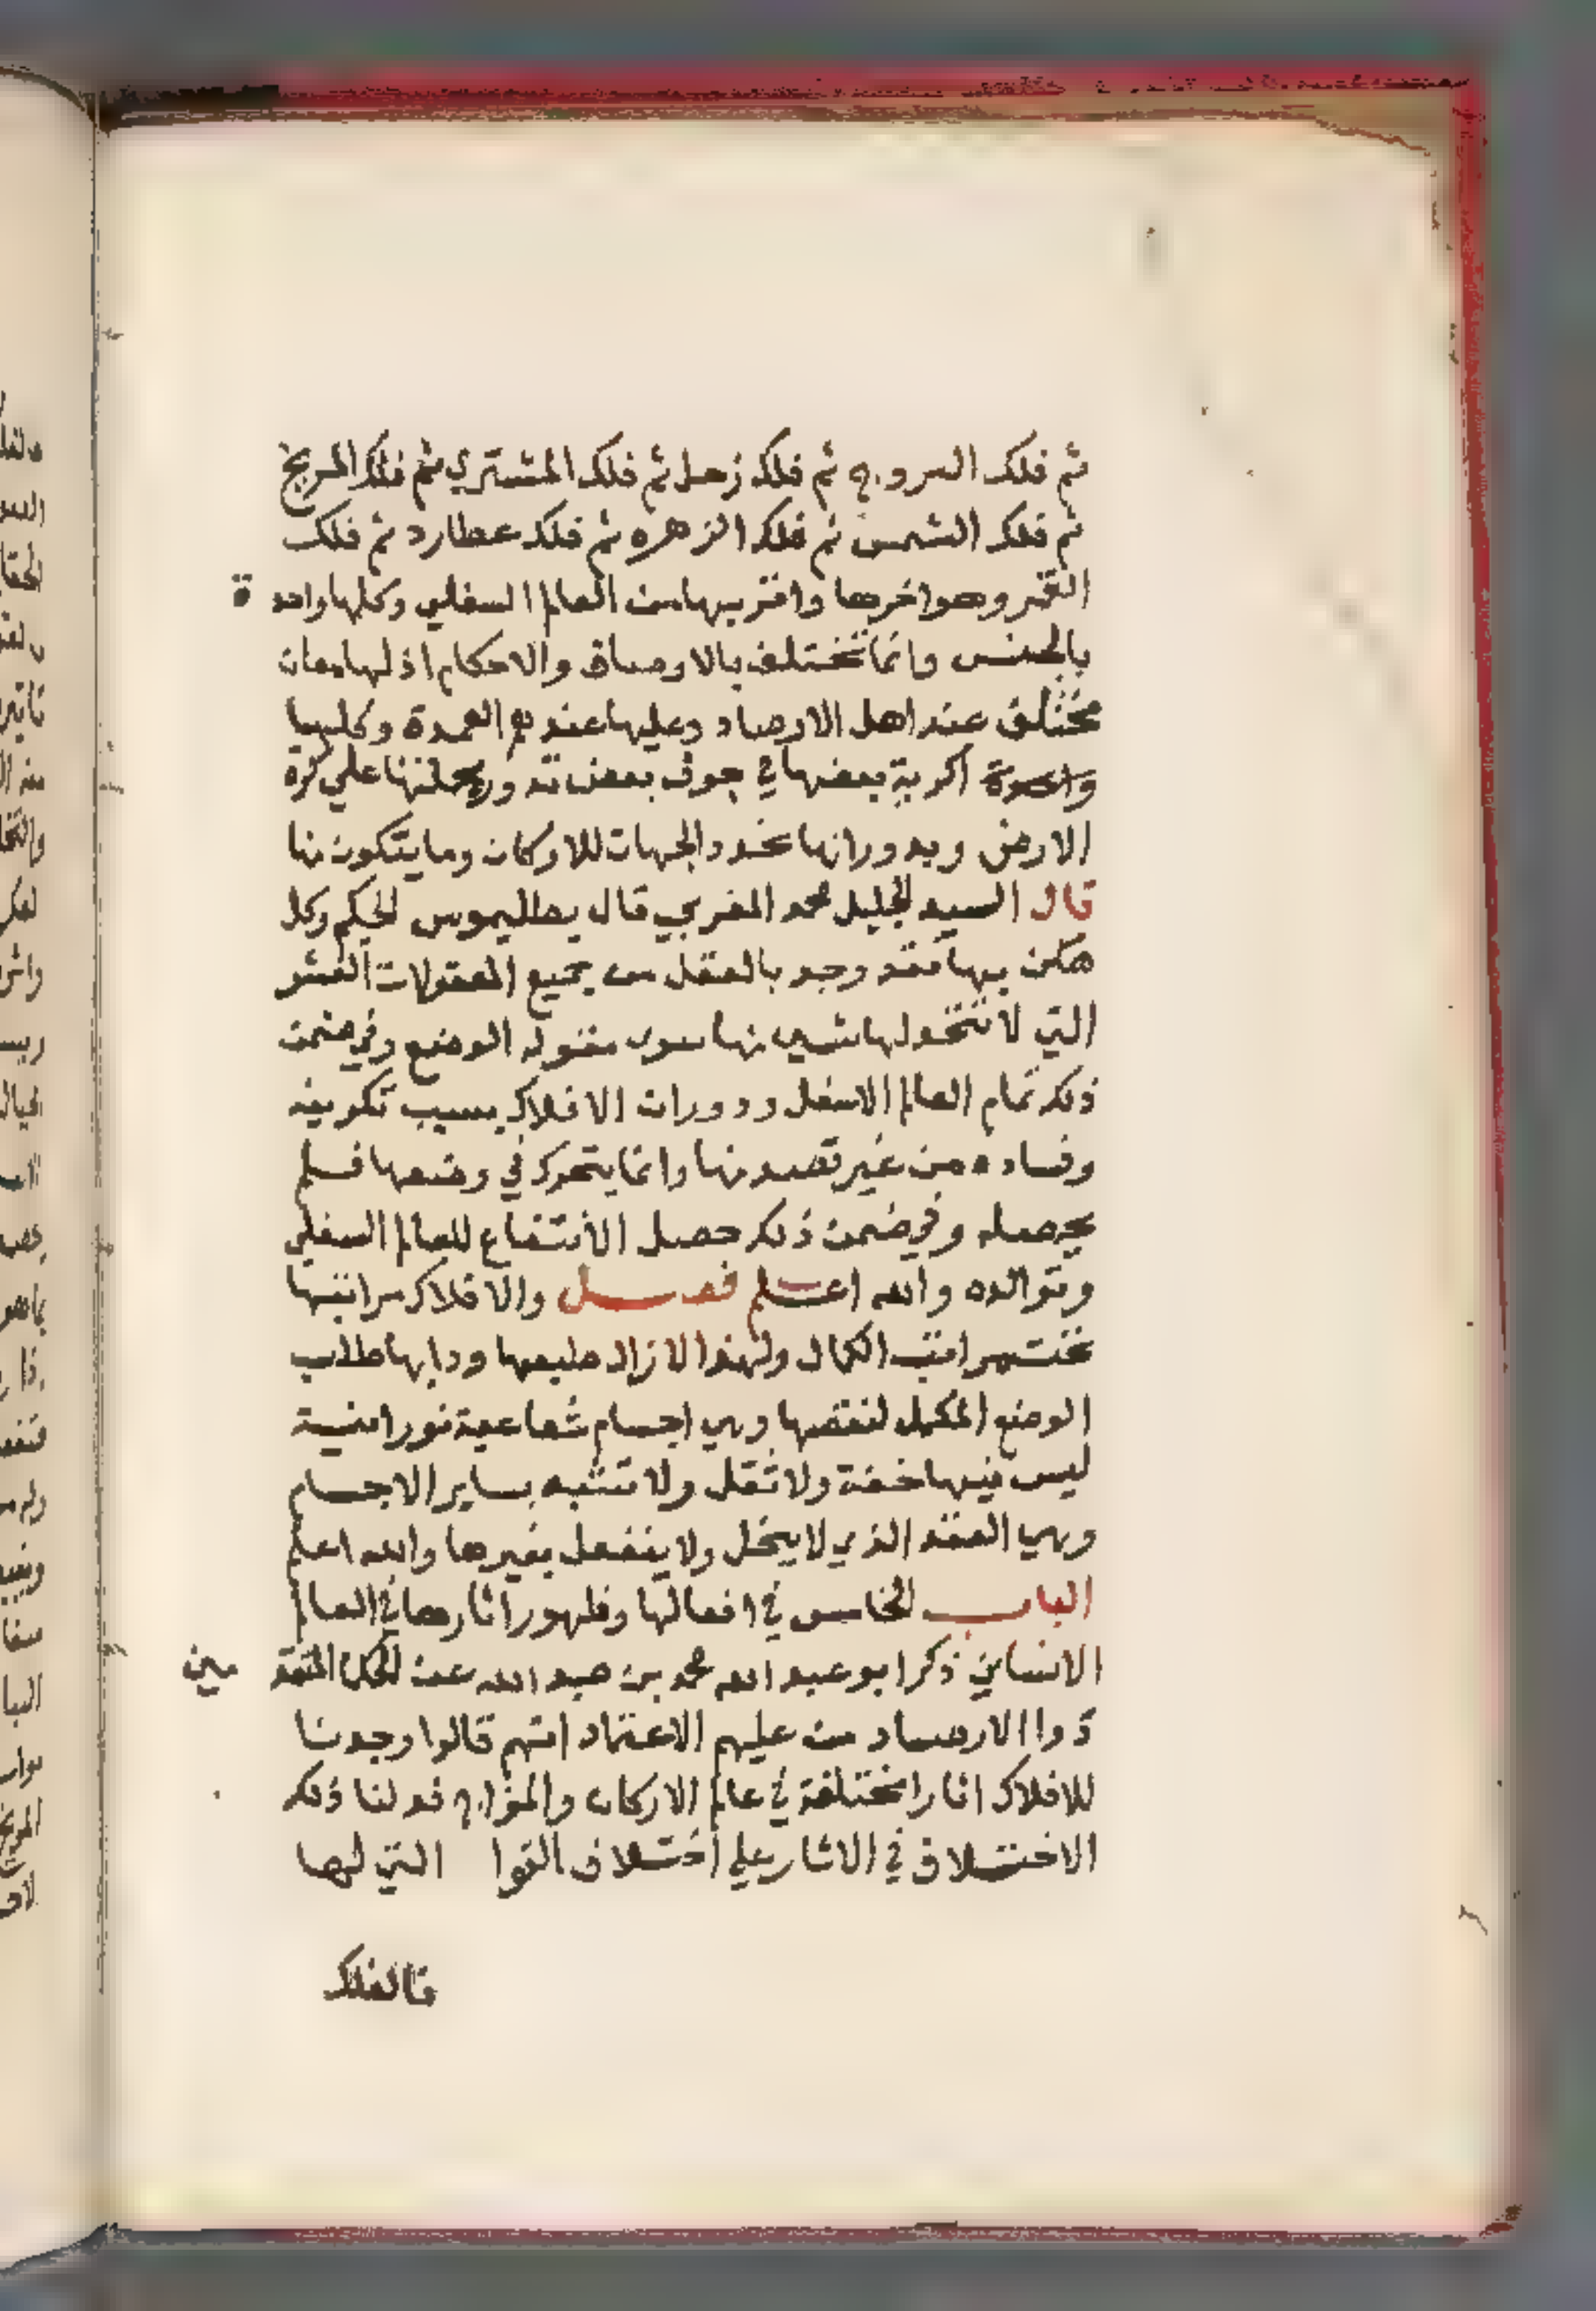 ثم فلك البروج ثم فلك زحل ثم فلك المشتري ثم فلك المريخ
ثم فلك الشمس ثم فلك الزهره ثم فلك عطارد ثم فلك
القمر وهو اخرها واقربها من العالم السفلي وكلها واحدة
بالجنس وانما تختلف بالاوصاف والاحكام اذ لها معان
مختلف عند اهل الارصاد وعليها عندهم العمدة وكليها
واحدة اكرية بعضها في جوف بعض تدور بجملتها علي كرة
الارض وبدورانها تحدد الجهات للاركان وما يتكون منها
قال السيد الجليل محمد المغربي قال بطليموس الحكيم وكل
ممكن بها فقد وجد بالعقل من جميع المعقولات العشر
التي لا شي منها سوي الوضع وفي ضمن
ذلك تمام العالم الاسفل ودوران الافلاك بسبب تكوينه
وفساده من غير قصد منها وانما يتحرك في وضعها فلم
يحصله وفي ضمن ذلك حصل الانتفاع للعالم السفلي
وتوالده والله اعلم فصل والافلاك مراتبها
تحت مراتب الكمال ولهذا لا زال طبعها ودابها طلب
الوضع المكمل لنقصها وهي اجسام شعاعية نورانية
ليس فيها خفة ولا ثقل ولا تشبه بساير الاجسام
وهي العقد الذي لا ينحل ولا ينفعل بغيرها والله اعلم
الباب الخامس في افعالها وظهور اثارها في العالم
الانساني ذكر ابو عبد الله محمد بن عبد الله عن الحكما المتقدمين
ذوا الارصاد من عليهم الاعتماد انهم قالوا وجدنا
للافلاك اثارا مختلفة في عالم الاركان والمزاج فدلنا ذلك
الاختلاف في الاثار علي اختلاف القوا التي لها
فالفلك